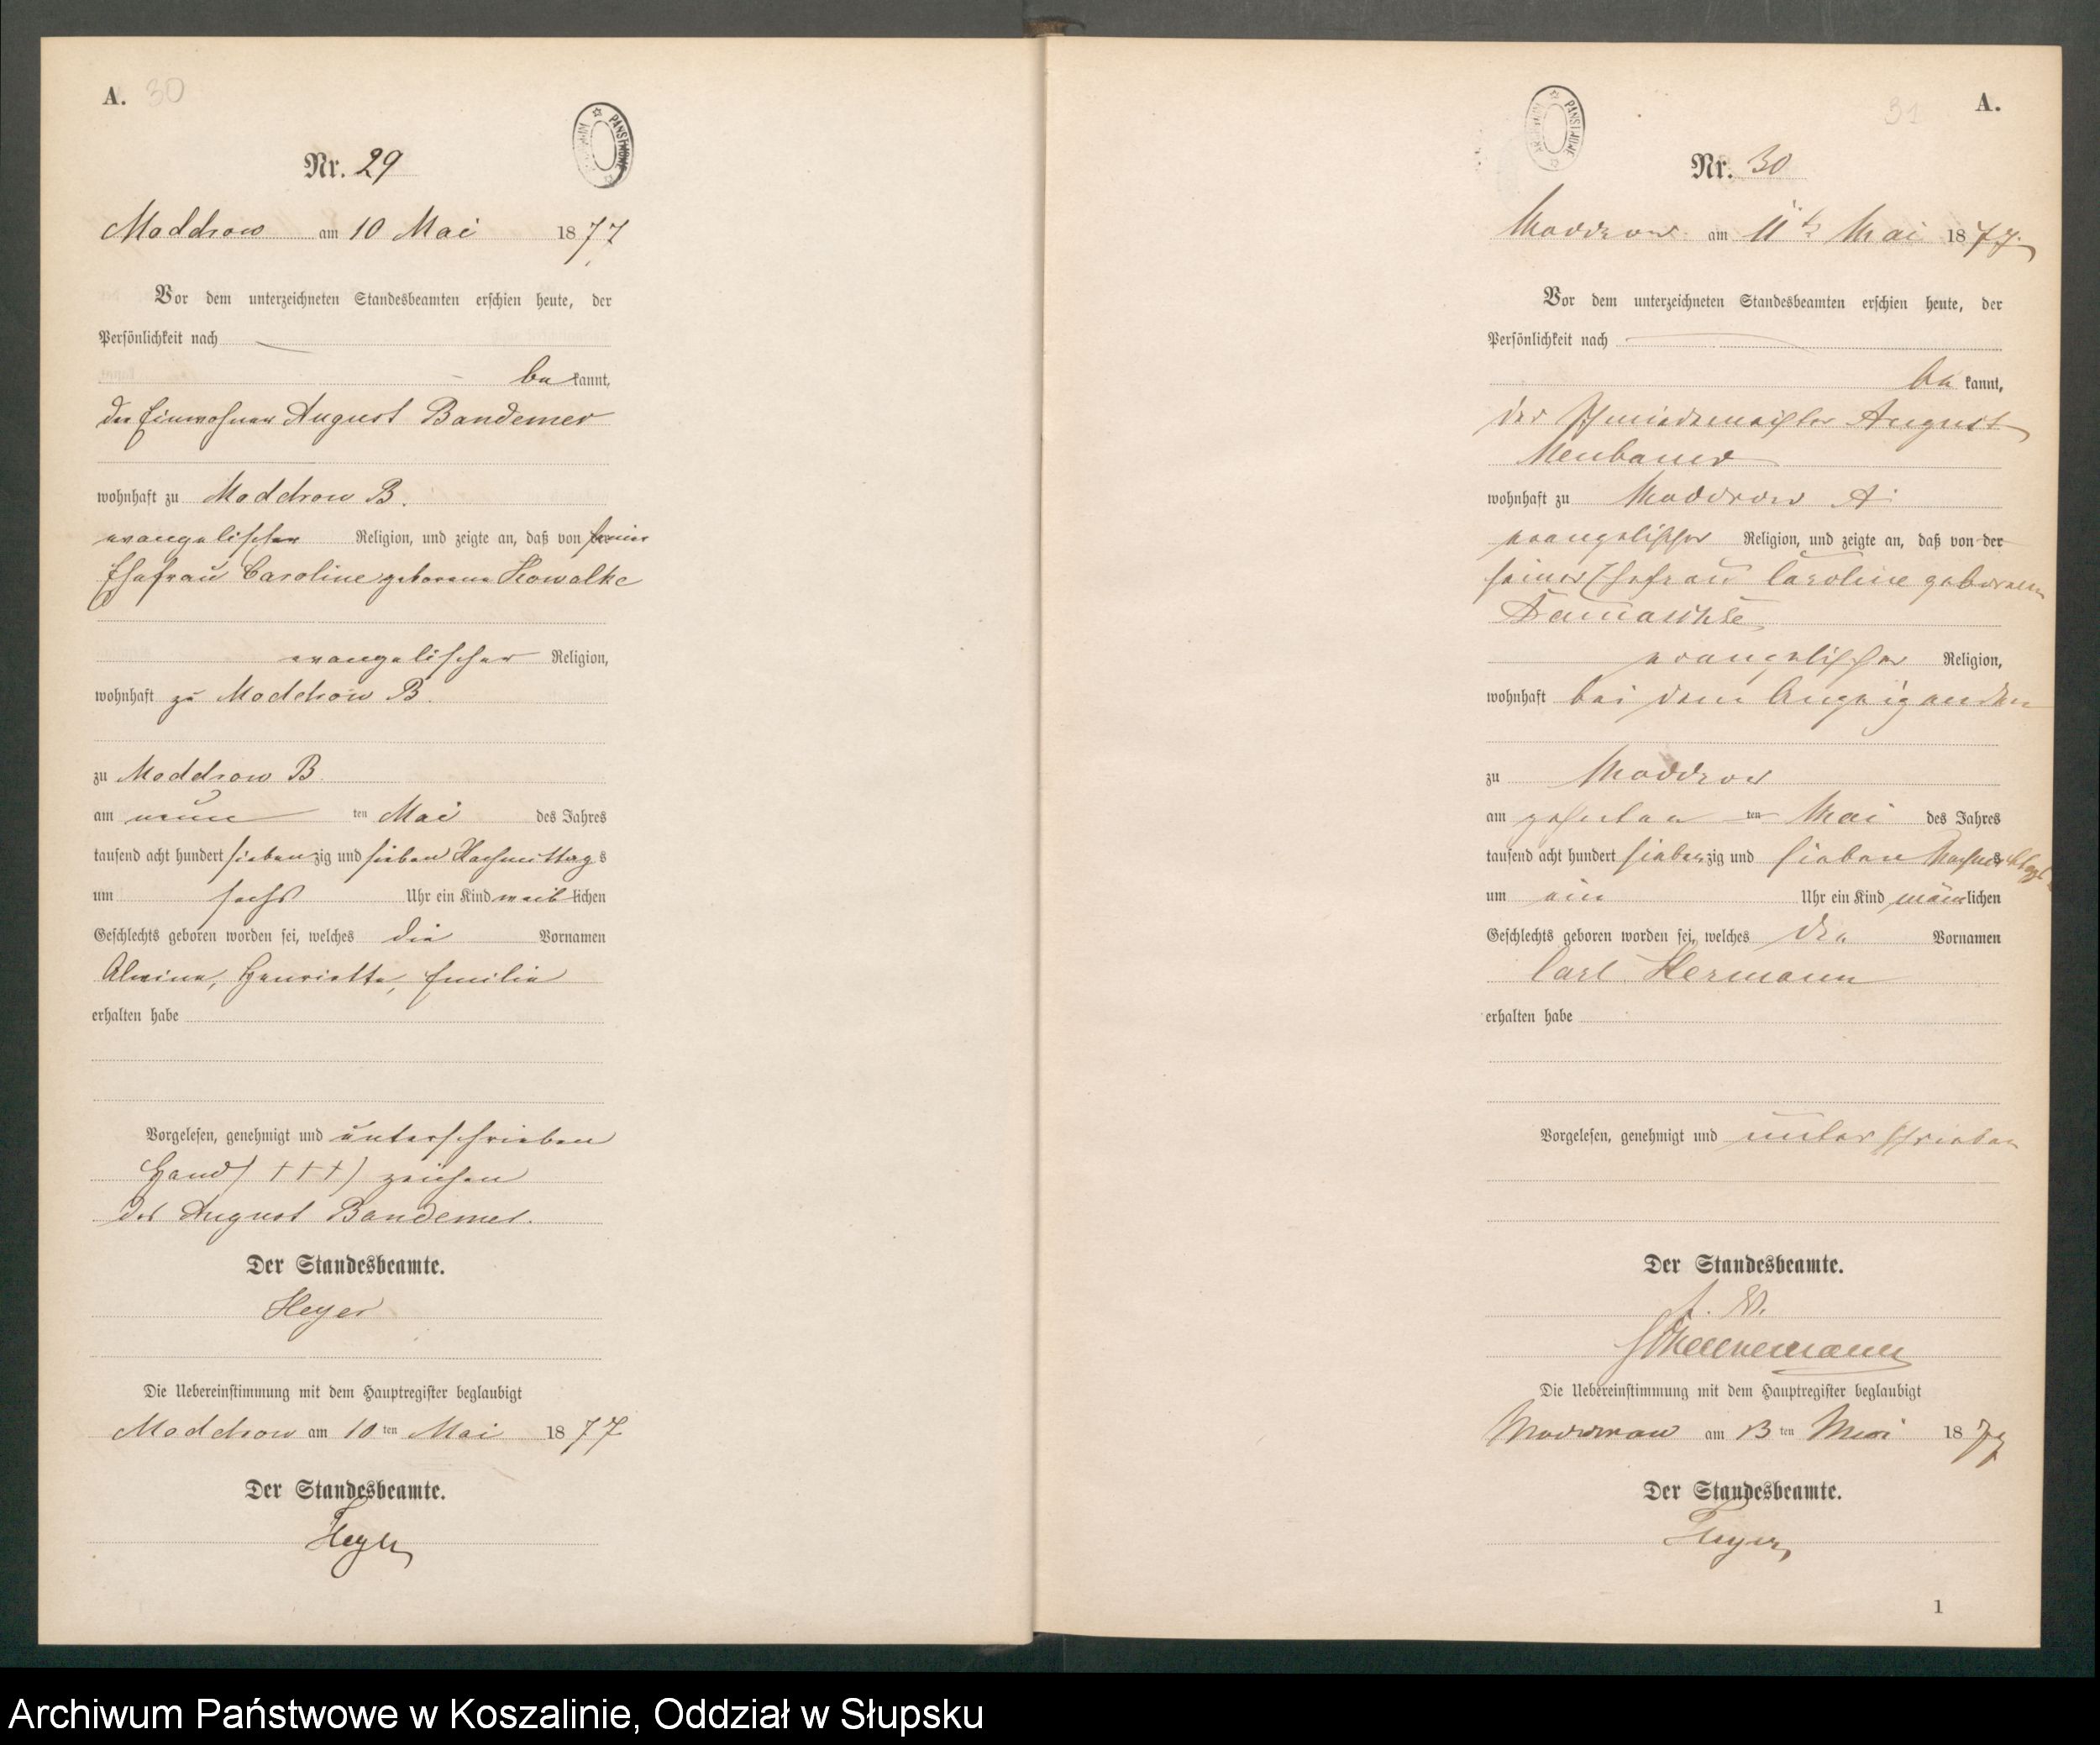 A. 30
Nr. 29
Moddrow am 10 Mai 1877
Vor dem unterzeichneten Standesbeamten erschien heute, der
Persönlichkeit nach
be kannt,
der Einwohner August Bandemer
wohnhaft zu Moddrow B.
evangelischer Religion, und zeigte an, daß von seiner
Ehefrau Caroline geborene Kowalke
evangelischer Religion,
wohnhaft zu Moddrow B.
zu Moddrow B.
am neun ten Mai des Jahres
tausend acht hundert siebenzig und sieben Nachmittags
um sechs Uhr ein Kind weiblichen
Geschlechts geboren worden sei, welches die Vornamen
Alwine, Henriette, Emilie
erhalten habe
Vorgelesen, genehmigt und unterschrieben
Hand (+++) zeichen
des August Bandemer.
Der Standesbeamte.
Heyer
Die Uebereinstimmung mit dem Hauptregister beglaubigt
Moddrow am 10 ten Mai 1877
Der Standesbeamte.
Heyer
31 A.
Nr. 30
Moddrow am 11 t Mai 1877.
Vor dem unterzeichneten Standesbeamten erschien heute, der
Persönlichkeit nach
be kannt,
der Schmiedemeister August
Neubauer
wohnhaft zu Moddrow A.
evangelischer Religion, und zeigte an, daß von der
seiner Ehefrau Caroline geborenen
evangelischer Religion,
wohnhaft bei dem Anzeigenden
zu Moddrow
am zehnten ten Mai des Jahres
tausend acht hundert siebenzig und sieben Nachmittags
um ein Uhr ein Kind männlichen
Geschlechts geboren worden sei, welches die Vornamen
Carl Hermann
erhalten habe
Vorgelesen, genehmigt und unterschrieben
Der Standesbeamte.
Die Uebereinstimmung mit dem Hauptregister beglaubigt
Moddrow am 13 ten Mai 1877
Der Standesbeamte.
Heyer
1
Archiwum Państwowe w Koszalinie, Oddział w Słupsku